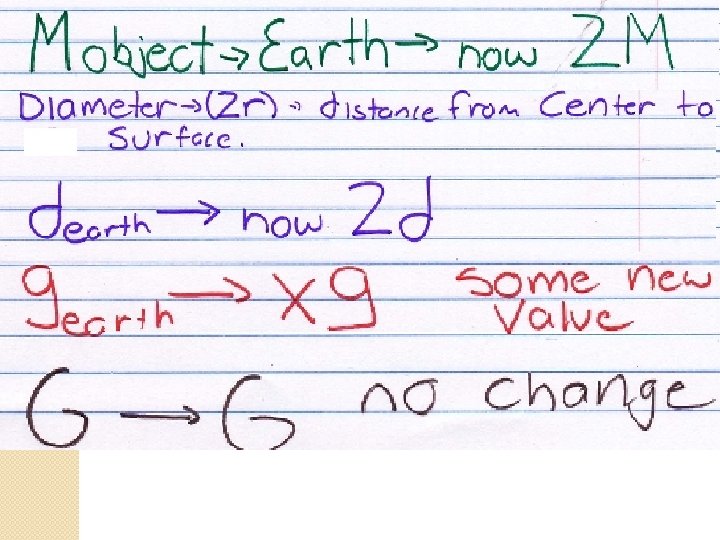 Mobject → Earth → now 2M
Diameter → (2r) " distance from Center to
Surface.
dearth → now 2d
gearth → xg some new
value
G → G no change